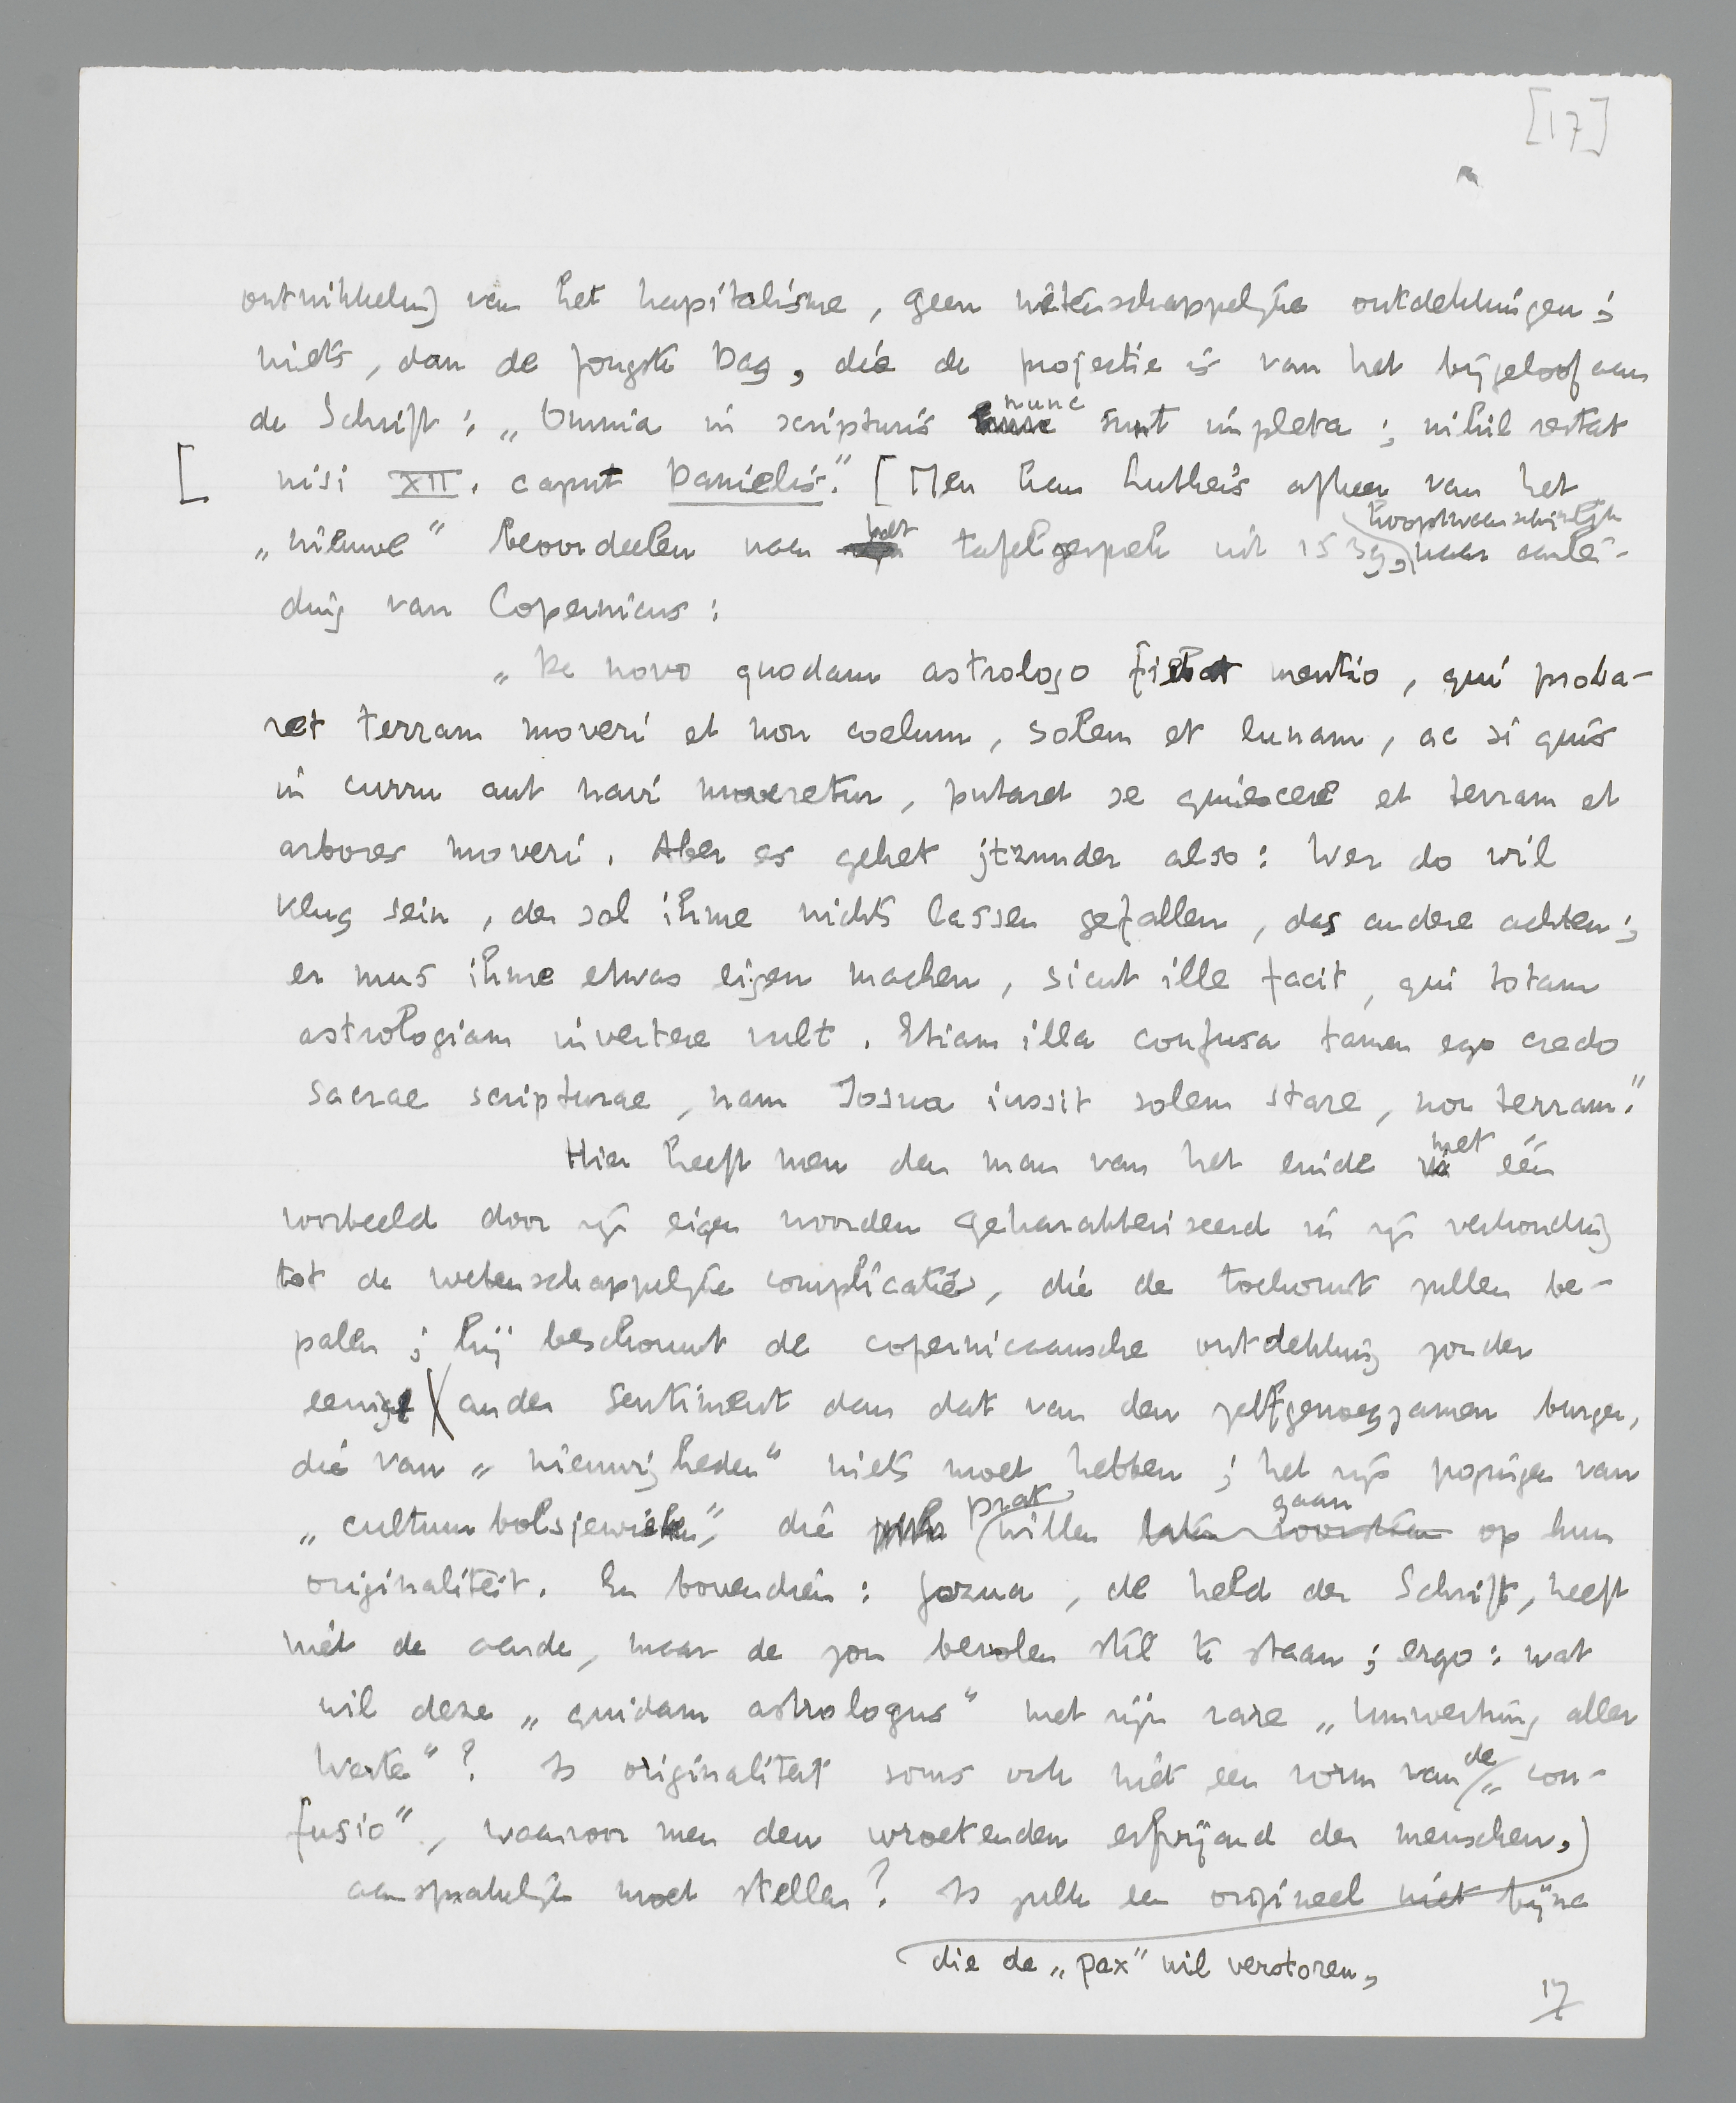 [17]
ontwikkeling van het kapitalisme, geen wetenschappelijke ontdekkingen;
niets, dan de jongste Dag, die de projectie is van het bijgeloof aan
de Schrift: „Omnia in scripturis nunc sunt impleta; nihil restat
[ nisi XII. caput Danielis." [Men kan Luther's afkeer van het
hoogstwaarschijnlijk
„nieuwe" beoordeelen naar het tafelgesprek uit 1539, naar aanlei-
ding van Copernicus:
„De novo quodam astrologo fiebat mentio, qui proba-
ret terram moveri et non coelum, solem et lunam, ac si quis
in curru aut navi moveretur, putaret se quiescere et terram et
arbores moveri. Aber es gehet jtzunder also: Wer do wil
klug sein, der sol ihme nichts lassen gefallen, das andere achten;
er mus ihme etwas eigen machen, sicut ille facit, qui totam
astrologiam invertere vult. Etiam illa confusa tamen ego credo
sacrae scripturae, nam Josua iussit solem stare, non terram."
Hier heeft men den man van het einde met één
voorbeeld door zijn eigen woorden gekarakteriseerd in zijn verhouding
tot de wetenschappelijke complicaties, die de toekomst zullen be-
palen; hij beschouwt de copernicaansche ontdekking zonder
eenig ander sentiment dan dat van den zelfgenoegzamen burger,
die van „nieuwigheden" niets moet hebben; het zijn pogingen van
„cultuurbolsjewieken", die prat willen gaan op hun
originaliteit. En bovendien: Jozua, de held der Schrift, heeft
niet de aarde, maar de zon bevolen stil te staan; ergo: wat
wil deze „quidam astrologus" met zijn rare „Umwertung aller
Werte"? Is originaliteit soms ook niet een vorm van de „con-
fusio", waarvoor men den wroetenden erfvijand der menschen,
aansprakelijk moet stellen? Is zulk een origineel niet bijna
die de „pax" wil verstoren,
17